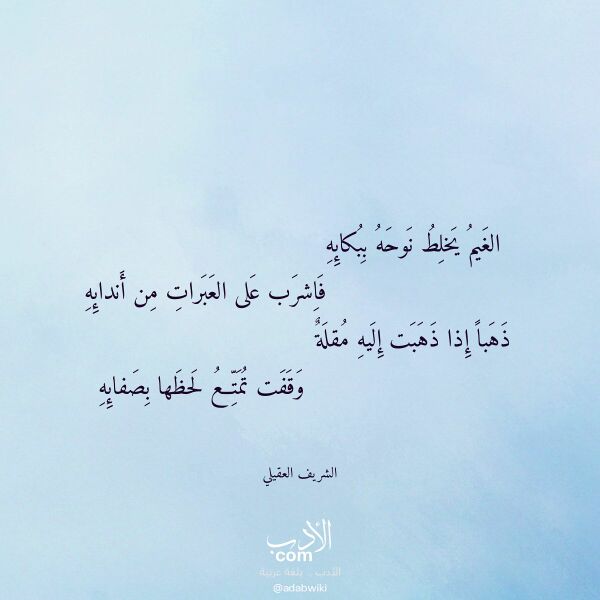 الغَيمُ يَخلِطُ نَوحَهُ بِبُكائِهِ
فَاِشرَب عَلى العَبَراتِ مِن أَندائِهِ
ذَهَباً إِذا ذَهَبَت إِلَيهِ مُقلَةٌ
وَقَفَت تُمَتِّعُ لَحظَها بِصَفائِهِ
الشريف العقيلي
الأدب
com
الأدب .. بلغة عربية
@adabwiki